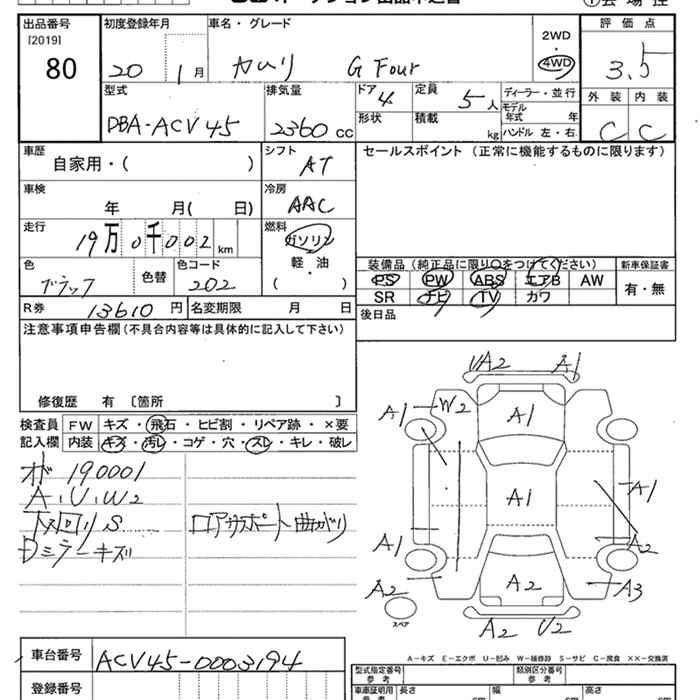 出品番号
[2019]
80
初度登録年月
20 1月
車名・グレード
カムリ G Four
2WD
・
4WD
評価点
3.5
外装 内装
C C
型式
DBA-ACV45
排気量
2360 CC
ドア
4
形状
定員
5人
積載
kg
ディーラー・並行
モデル
年式 年
ハンドル 左・右
車歴
自家用・( )
シフト
AT
車検
年 月( 日)
冷房
AAC
走行
19万0千002km
燃料
ガソリン
軽・油
( ・ )
色
ブラック
色替
色コード
202
R券 13610円
名変期限 月 日
セールスポイント (正常に機能するものに限ります)
装備品(純正品に限り○をつけてください)
PS PW ABS エアB AW
SR ナビ TV カワ
新車保証書
有・無
後日品
注意事項申告欄(不具合内容等は具体的に記入して下さい)
修復歴 有〔箇所 〕
検査員
記入欄
FW キズ・飛石・ヒビ割・リペア跡・×要
内装 キズ・汚レ・コゲ・穴・スレ・キレ・破レ
オド 190001
A・U・W2
下回りS
Dミラーキズ
ロアサポート曲がり
UA2 A1
A1 W2 A1
A1 A1
A1 A2
A2 A2 A3
スペア
A2 U2
A-キズ E-エクボ U-凹み W-補修跡 S-サビ C-腐食 ××-交換済
車台番号 ACV45-0003194
登録番号
型式指定番号
参考
類別区分番号
参考
車庫証明用
参考
長さ cm
幅 cm
高さ cm